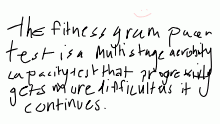 the fitness gram pacer
test is a multistage aerobity
capacity test that progressively
gets more difficult as it
continues.